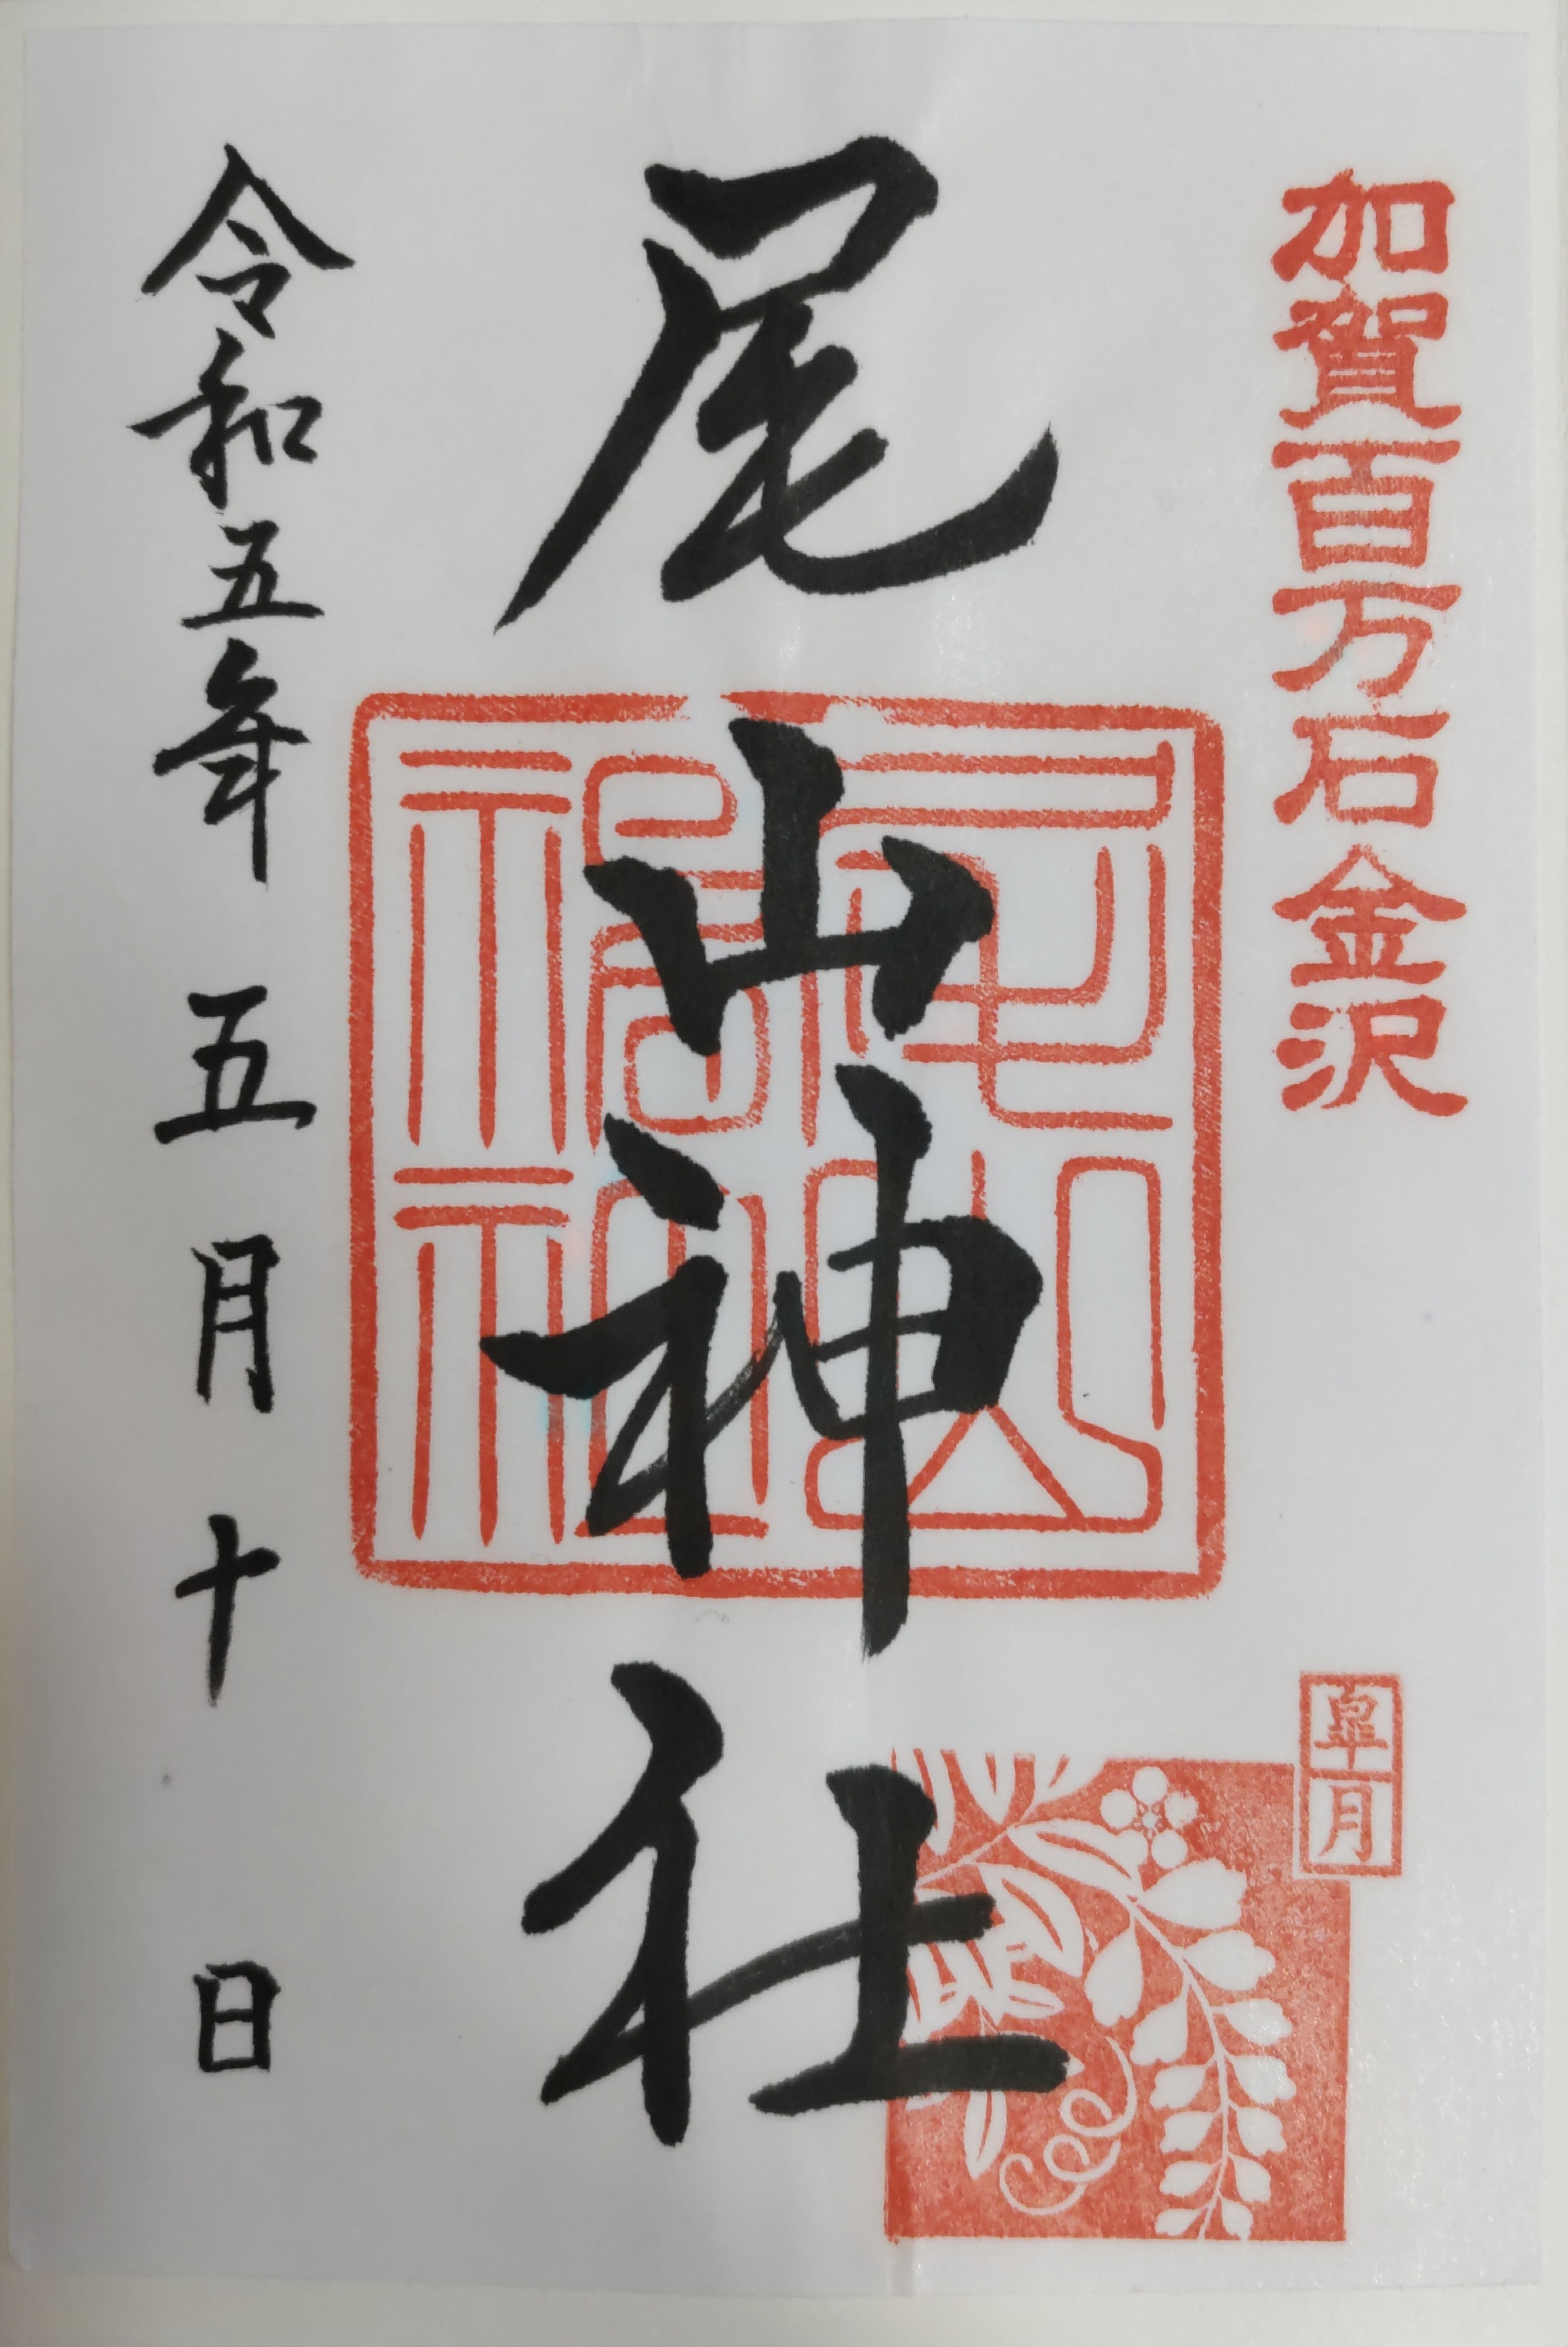 加賀百万石金沢
皐月
尾山神社
尾山神社
令和五年五月十日